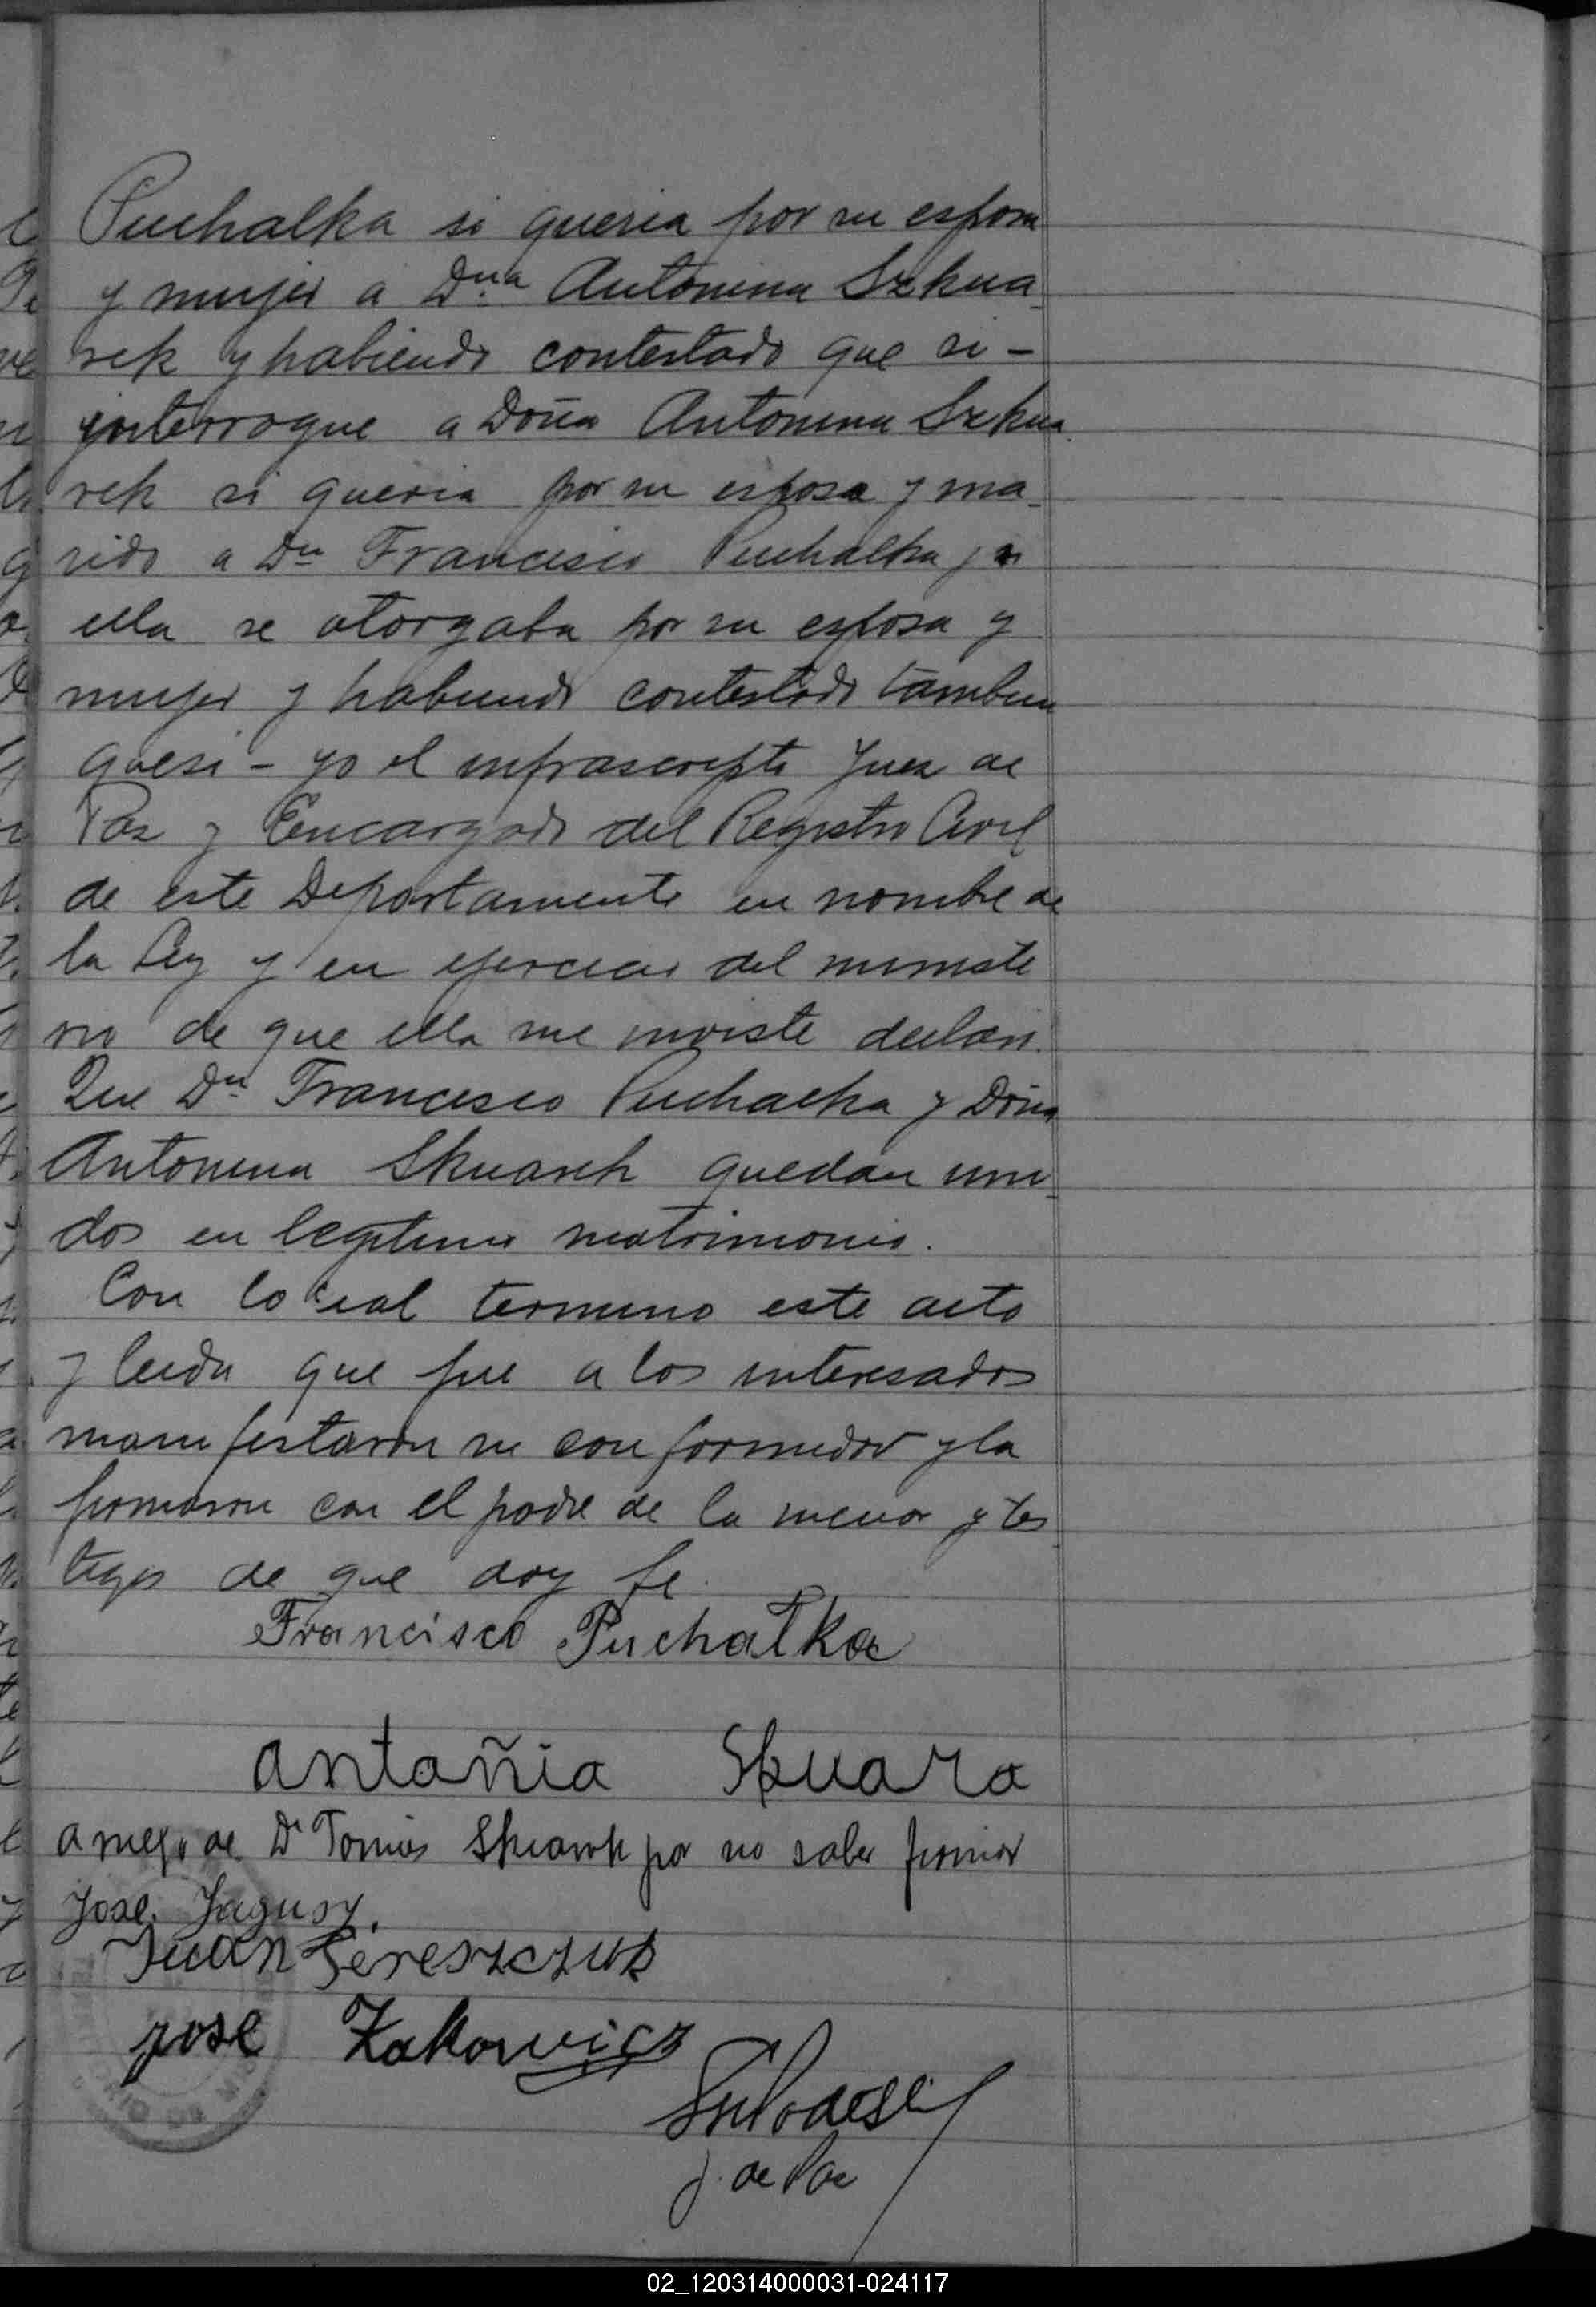 Puchalka si queria por su esposa
y mujer a Dña Antonina Szkua
rek y habiendo contestado que si -
interrogue a Doña Antonina Szkua
rek si queria por su esposo y ma
rido a Dn Francisco Puchalka y si
ella se otorgaba por su esposa y
mujer y habiendo contestado tambien
que si - yo el infrascripto Juez de
Paz y Encargado del Registro Civil
de este Departamento en nombre de
la Ley y en ejercicio del ministe
rio de que ella me inviste declaro
Que Dn Francisco Puchalka y Doña
Antonina Skuarek quedan uni
dos en legitimo matrimonio.
Con lo cual termino este acto
y leida que fue a los interesados
manifestaron su conformidad y la
firmaron con el padre de la menor y tes
tigos de que doy fe.
Francisco Puchałka
antañia Skuara
a ruego de Dn Tomas Skuarek por no saber firmar
Jose Jagusz.
Juan Gereszczuk
jose Zakowicz
J. de Paz
02_120314000031-024117